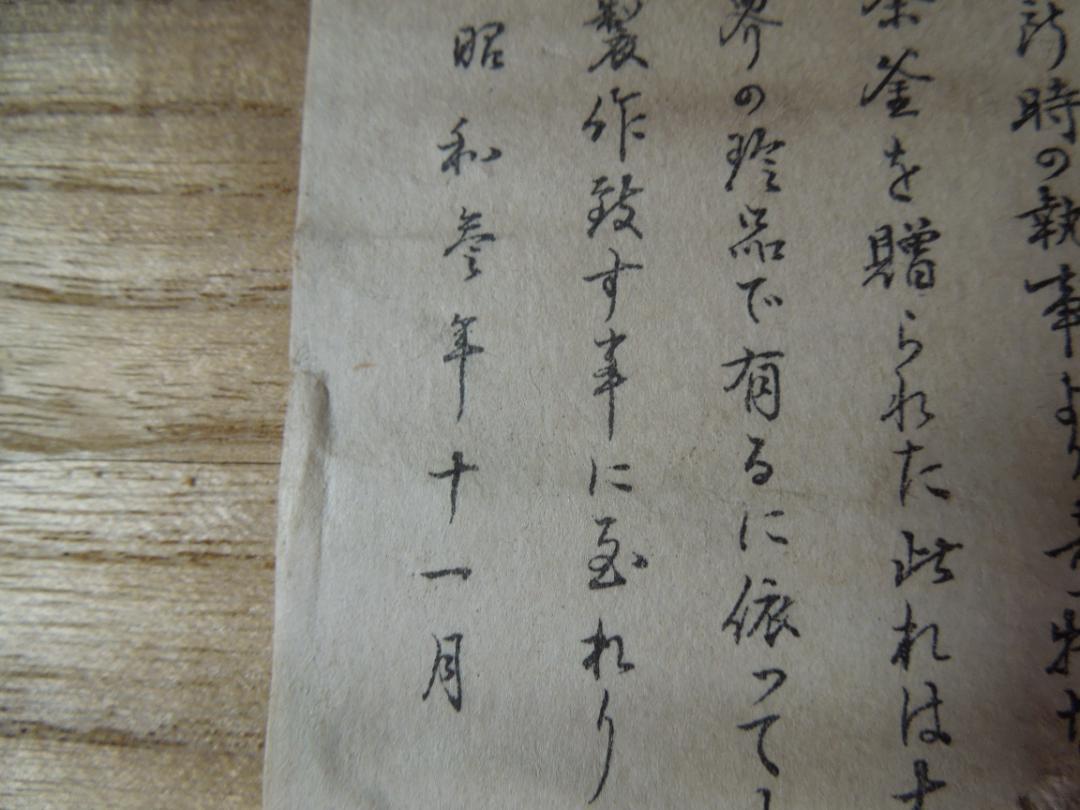 時の執事より
釜を贈られた此れは
界の珍品で有るに依って
製作致す事に至れり
昭和参年十一月